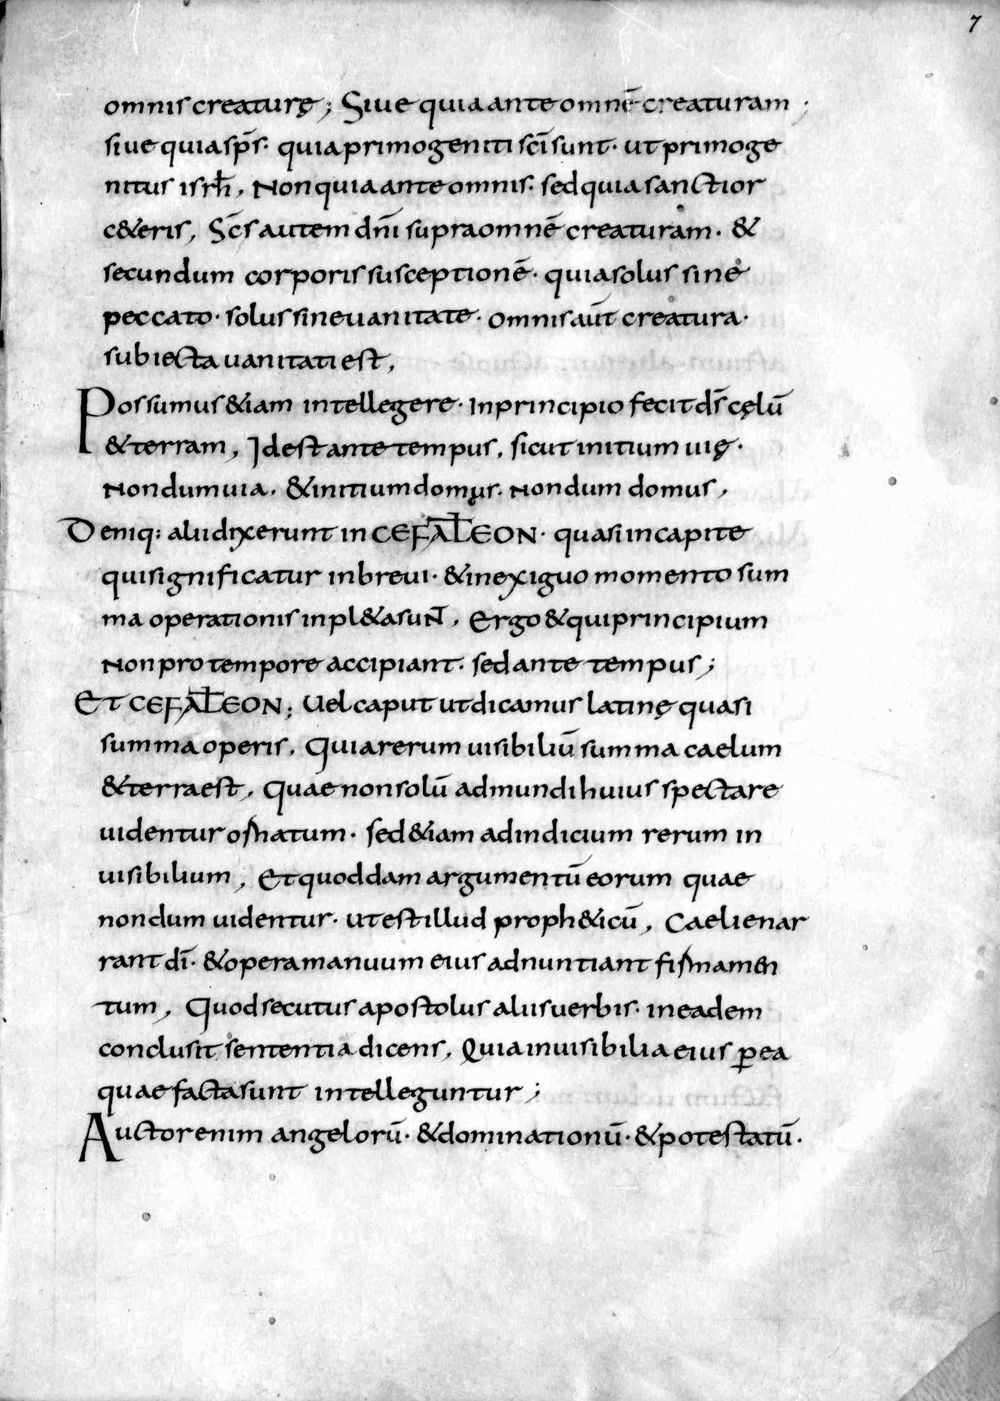 7
omnis creaturę; Siue quia ante omnē creaturam;
siue quia sp̄s· quia primogeniti sc̄i sunt· ut primoge
nitus isrl̄, Non quia ante omnis· sed quia sanctior
c&eris, Sc̄s autem dn̄i supra omnē creaturam· &
secundum corporis susceptionē· quia solus sine
peccato· solus sine uanitate· omnis aūt creatura·
subiecta uanitati est,
Possumus &iam intellegere· In principio fecit ds̄ cęlū
& terram, Idest ante tempus, sicut initium uię·
Nondum uia, & initium domųs· Nondum domus,
Deniq: alii dixerunt in CEFAL̄EON· quasi in capite
qui significatur in breui· & in exiguo momento sum
ma operationis inpl&a sunt̄, Ergo & qui principium
Non pro tempore accipiant· sed ante tempus;
Et CEFAL̄EON; Uel caput ut dicamus latinę quasi
summa operis, Quia rerum uisibiliū summa caelum
& terra est, Quae non solū ad mundi huius spectare
uidentur ornatum· sed &iam ad indicium rerum in
uisibilium, Et quoddam argumentū eorum quae
nondum uidentur· ut est illud proph&icū, Caeli enar
rant dī· & opera manuum eius adnuntiant firmamen
tum, Quod secutus apostolus aliis uerbis· in eadem
conclusit sententia dicens, Quia inuisibilia eius p̲ ea
quae facta sunt intelleguntur;
Auctor enim angelorū· & dominationū· & potestatū·